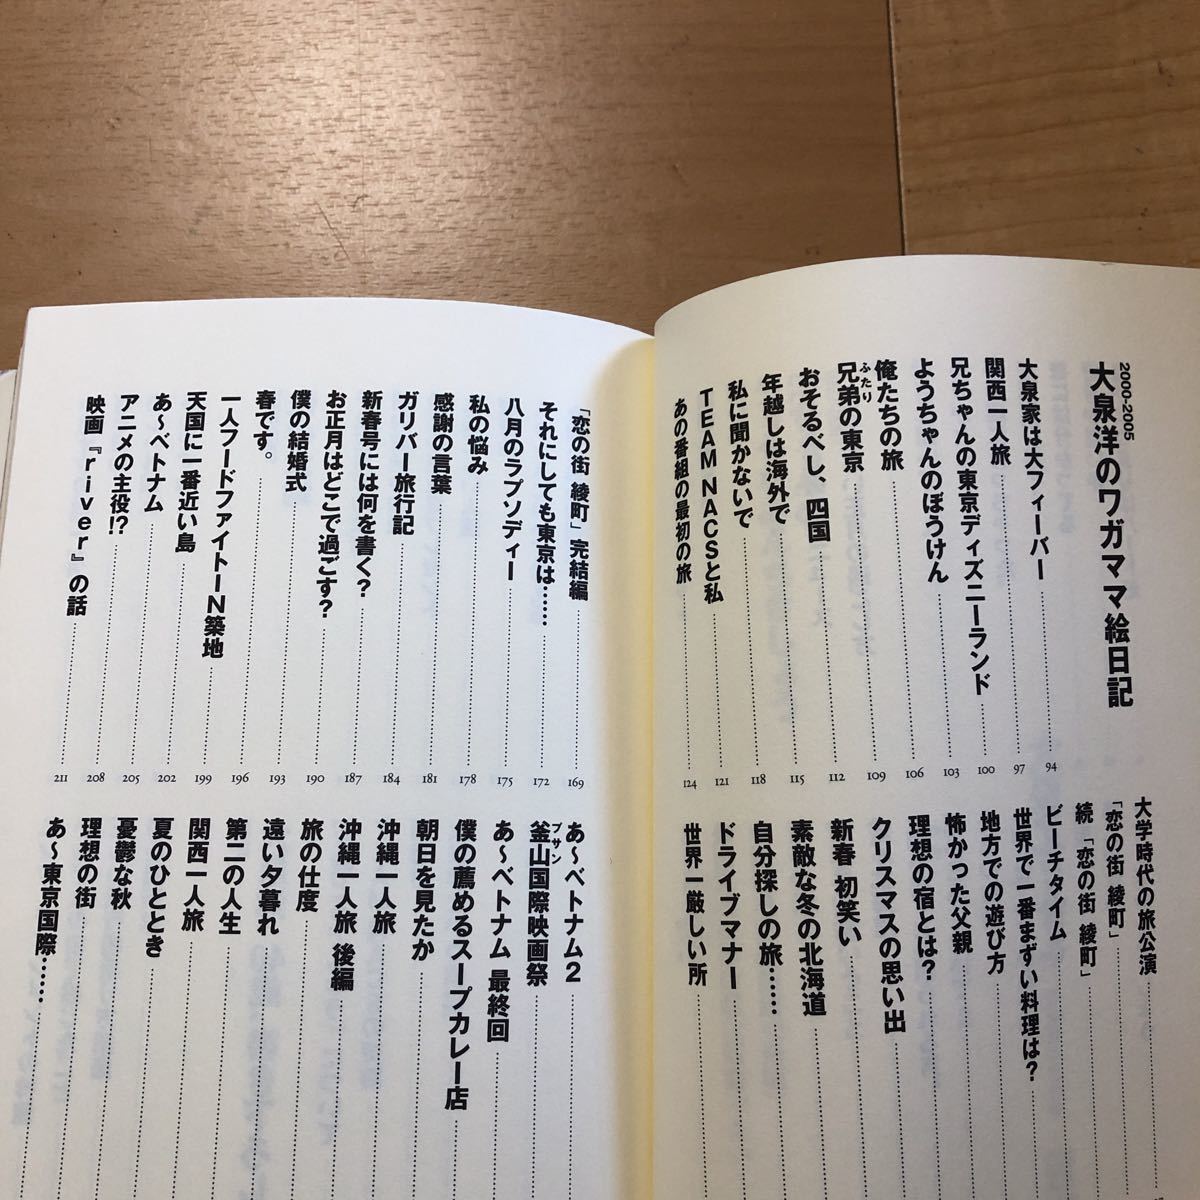 2000-2005
大泉洋のワガママ絵日記
大泉家は大フィーバー 94
関西一人旅 97
兄ちゃんの東京ディズニーランド 100
ようちゃんのぼうけん 103
俺たちの旅 106
兄弟の東京 109
ふたり
おそるべし、四国 112
年越しは海外で 115
私に聞かないで 118
TEAM NACSと私 121
あの番組の最初の旅 124
大学時代の旅公演
「恋の街 綾町」
続「恋の街 綾町」
ビーチタイム
世界で一番まずい料理は?
地方での遊び方
怖かった父親
理想の宿とは?
クリスマスの思い出
新春 初笑い
素敵な冬の北海道
自分探しの旅……
ドライブマナー
世界一厳しい所
「恋の街 綾町」完結編 169
それにしても東京は…… 172
八月のラプソディー 175
私の悩み 178
感謝の言葉 181
ガリバー旅行記 184
新春号には何を書く? 187
お正月はどこで過ごす? 190
僕の結婚式 193
春です。 196
一人フードファイトーN築地 199
天国に一番近い島 202
あ〜ベトナム 205
アニメの主役!? 208
映画『river』の話 211
あ〜ベトナム2
釜山国際映画祭
プサン
あ〜ベトナム 最終回
僕の薦めるスープカレー店
朝日を見たか
沖縄一人旅
沖縄一人旅 後編
旅の仕度
遠い夕暮れ
第二の人生
関西一人旅
夏のひととき
憂鬱な秋
理想の街
あ〜東京国際……